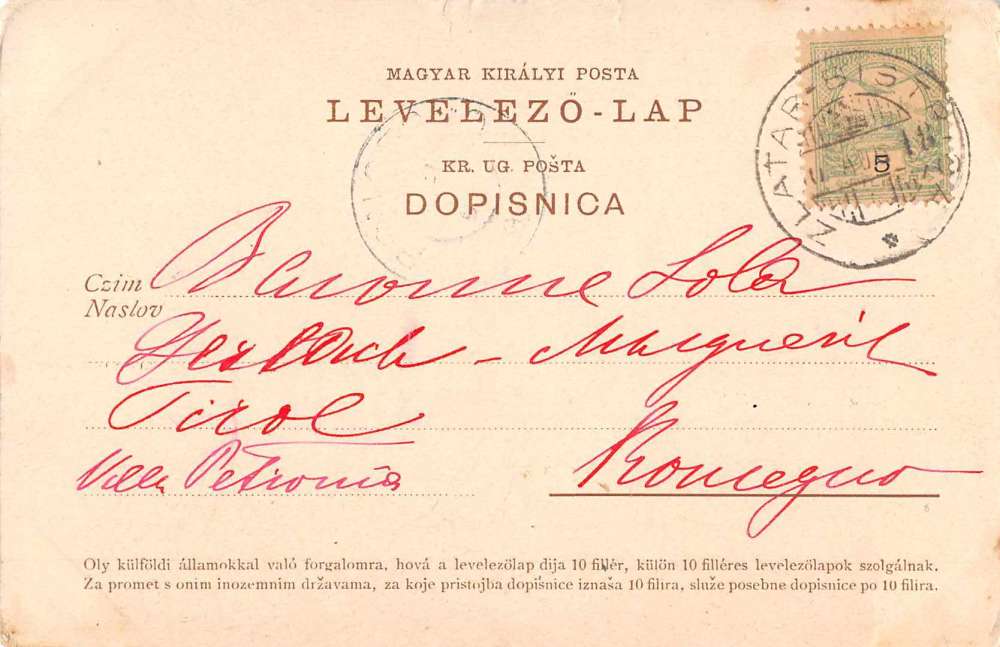 MAGYAR KIRÁLYI POSTA
LEVELEZŐ-LAP
KR. UG. POŠTA
DOPISNICA
ZLATAR-BISTRICA
5
Czim
Naslov
Baronne Lola
Tirol
Villa Petronia
Roncegno
Oly külföldi államokkal való forgalomra, hová a levelezőlap dija 10 fillér, külön 10 filléres levelezőlapok szolgálnak.
Za promet s onim inozemnim državama, za koje pristojba dopišnice iznaša 10 filira, služe posebne dopisnice po 10 filira.